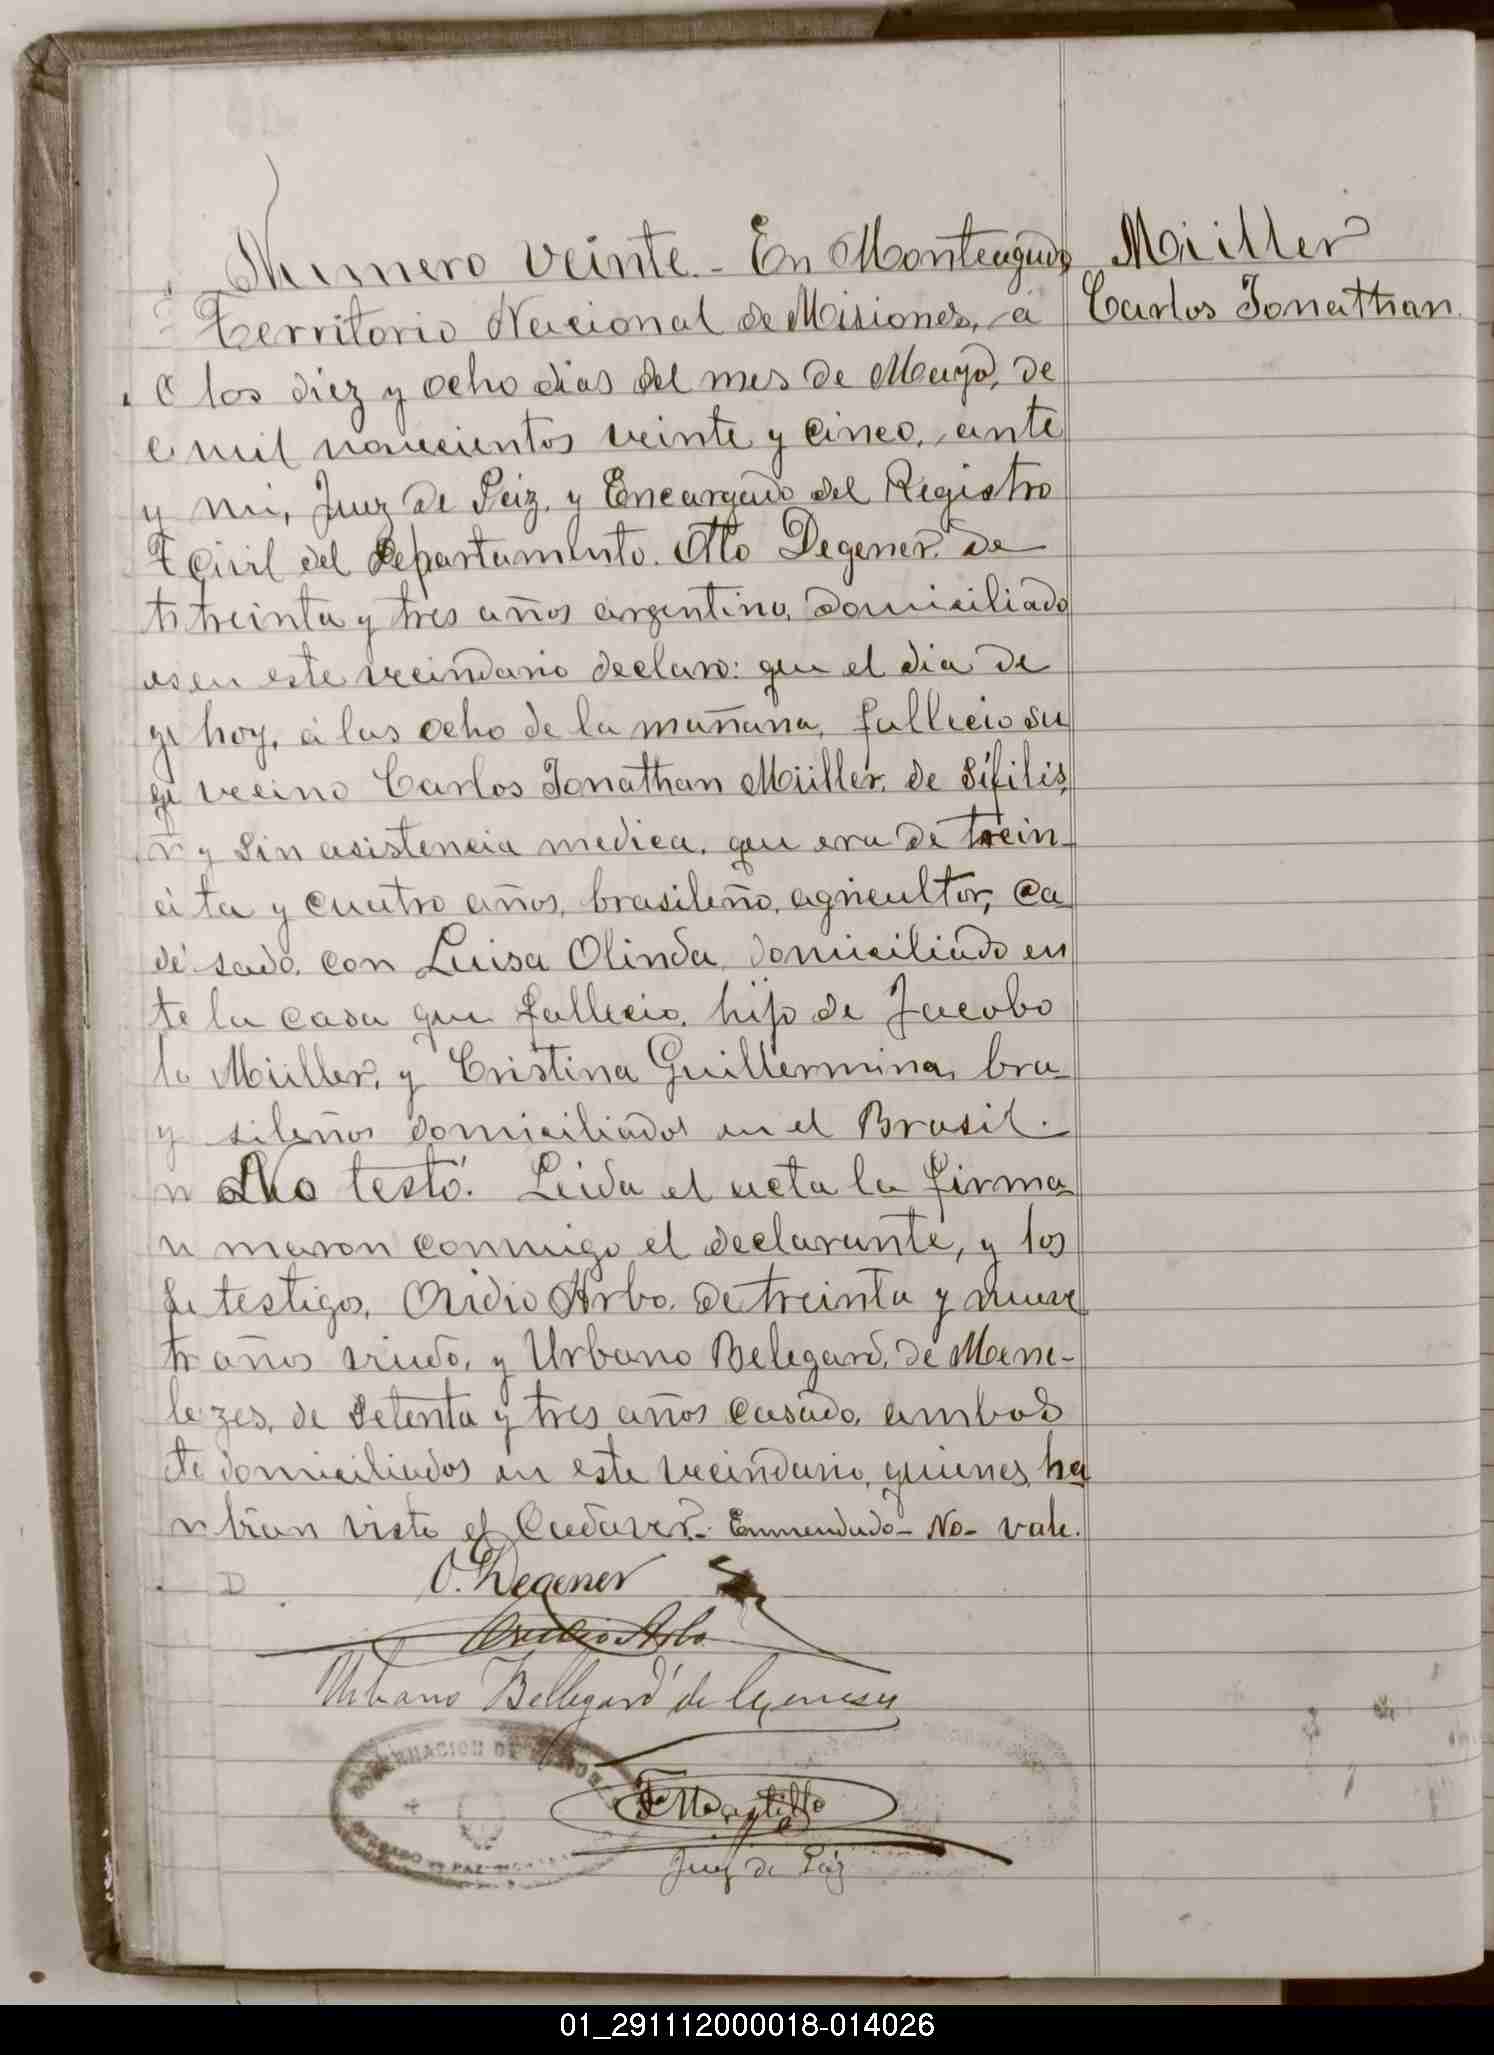 Numero veinte.- En Monteagudo
Territorio Nacional de Misiones, á
los diez y ocho dias del mes de Mayo, de
mil novecientos veinte y cinco, ante
mi, Juez de Paz, y Encargado del Registro
Civil del Departamento. Otto Degener, de
treinta y tres años argentino, domiciliado
en este vecindario declaro: que el dia de
hoy, á las ocho de la mañana, fallecio su
vecino Carlos Jonathan Müller, de sífilis,
y sin asistencia medica, que era de trein-
ta y cuatro años, brasileño, agricultor, ca-
sado, con Luisa Olinda, domiciliado en
la casa que fallecio, hijo de Jacobo
Müller, y Cristina Guillermina, bra-
sileños domiciliados en el Brasil.-
No testó. Leida el acta la firma-
maron conmigo el declarante, y los
testigos, Ovidio Arbo, de treinta y nueve
años viudo, y Urbano Belegard, de Mene-
zes, de setenta y tres años casado, ambos
domiciliados en este vecindario, quienes ha-
bian visto el Cadaver.- Enmendado- No- vale.
O. Degener
Ovidio Arbo
Urbano Bellegard de
Juez de Paz
Müller
Carlos Jonathan.
01_291112000018-014026